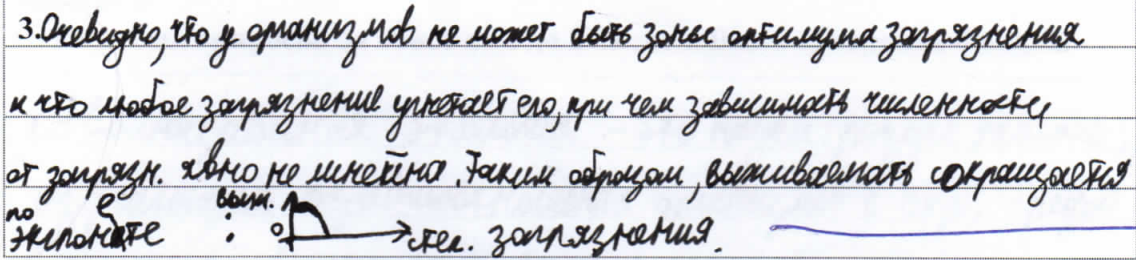 3. Очевидно, что у организмов не может быть зоны оптимума загрязнения
и что любое загрязнение угнетает его, при чем зависимость численности
от загрязн. явно не линейна. Таким образом, выживаемость сокращается
по экспоненте : выж. 0 степ. загрязнения.